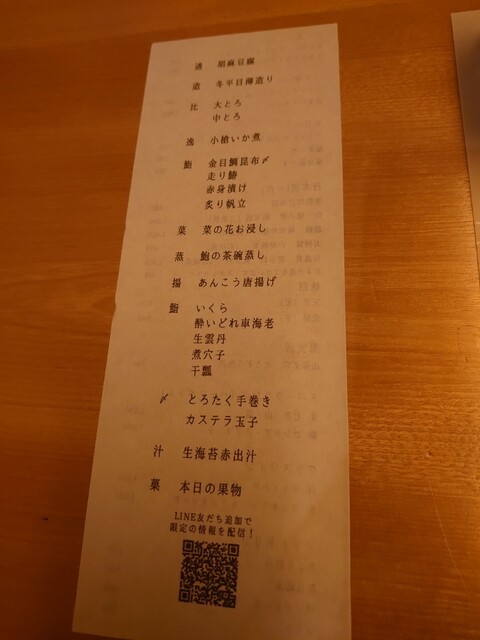 通 胡麻豆腐
造 冬平目薄造り
比 大とろ
中とろ
逸 小槍いか煮
鮨 金目鯛昆布〆
走り鰆
赤身漬け
炙り帆立
菜 菜の花お浸し
蒸 鮑の茶碗蒸し
揚 あんこう唐揚げ
鮨 いくら
酔いどれ車海老
生雲丹
煮穴子
干瓢
〆 とろたく手巻き
カステラ玉子
汁 生海苔赤出汁
菓 本日の果物
LINE友だち追加で
限定の情報を配信！